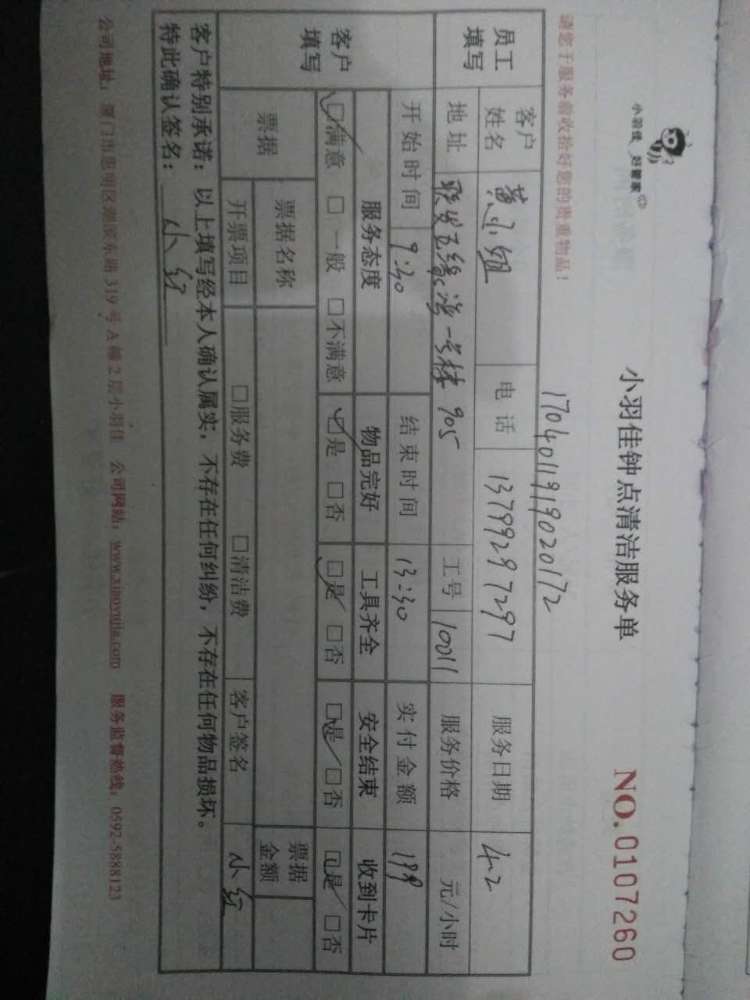 小羽佳 好管家
小羽佳钟点清洁服务单
NO.0107260
请您于服务前收拾好您的贵重物品！
1704011919020172
员工填写
客户姓名 黄小姐 电话 13799297297 服务日期 4.2
地址 联发五缘湾一号 905 工号 10011 服务价格 元/小时
开始时间 9:30 结束时间 13:30 实付金额 199
客户填写
服务态度 物品完好 工具齐全 安全结束 收到卡片
☑满意 □一般 □不满意 ☑是 □否 ☑是 □否 ☑是 □否 ☑是 □否
票据 票据名称 票据金额
开票项目 □服务费 □清洁费 客户签名
客户特别承诺：以上填写经本人确认属实，不存在任何纠纷，不存在任何物品损坏。
特此确认签名：
公司地址：厦门市思明区湖滨东路319号A幢2层小羽佳 公司网站：www.xiaoyujia.com 服务监督热线：0592-5888123